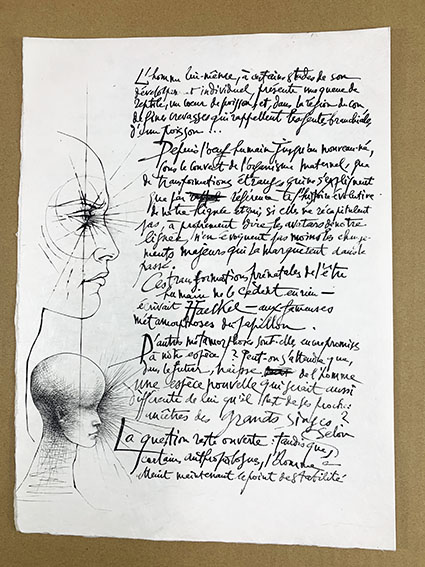 L'homme lui-même, à certains stades de son
développement individuel, présente une queue de
reptile, un cœur de poisson et, dans la région du cou
de fines crevasses qui rappellent les fentes branchiales
d'un poisson !...
Depuis l'œuf humain jusqu'au nouveau-né,
sous le couvert de l'organisme maternel, que
de transformations étranges qui ne s'expliquent
que par référence à l'histoire évolutive
de notre lignée et qui, si elles ne récapitulent
pas, à proprement dire, les avatars de notre
lignée, n'en évoquent pas moins les change-
ments majeurs qui la marquèrent dans le
passé.
Ces transformations prénatales de l'être
humain ne le cèdent en rien —
écrivait Haeckel — aux fameuses
métamorphoses du papillon.
D'autres métamorphoses sont-elles encore promises
à notre espèce ? Peut-on s'attendre que,
dans le futur, naisse de l'homme
une espèce nouvelle qui serait aussi
différente de lui qu'il l'est de ses proches
ancêtres des grands singes ?
La question reste ouverte : tandis que, selon
certains anthropologues, l'homme a
atteint maintenant le point de stabilité